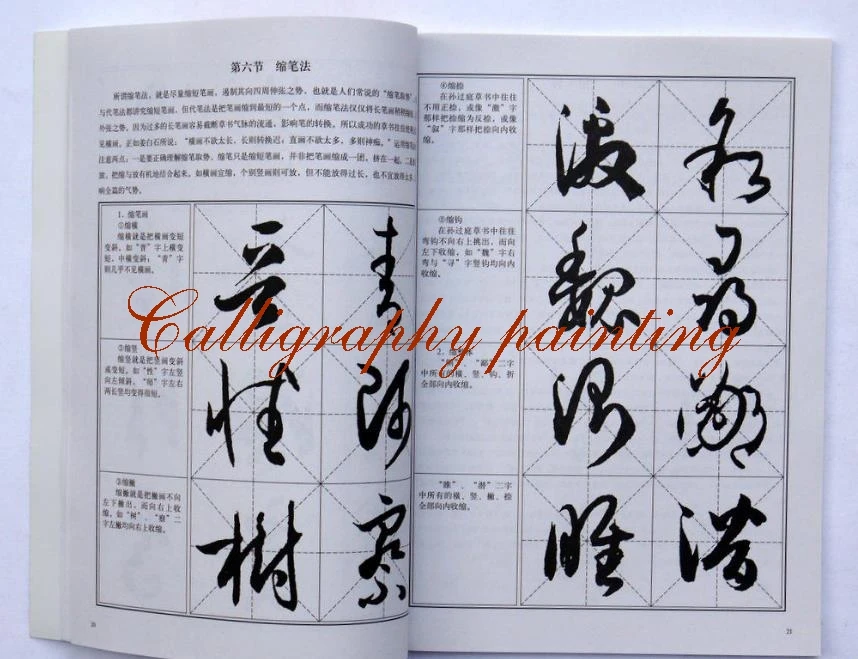 第六节 缩笔法
所谓缩笔法，就是尽量缩短笔画，遏制其向四周伸张之势，也就是人们常说的“缩笔取势”。
与代笔法都讲究缩短笔画，但代笔法是把笔画缩到最短的一个点，而缩笔法仅仅将长笔画稍稍
外张之势，因为过多的长笔画容易截断草书气脉的流通，影响笔的转换。所以成功的草书往往
见横画，正如姜白石所说：“横画不欲太长，长则转换迟；直画不欲太多，多则神痴。”运用缩笔
注意两点：一是要正确理解缩笔取势，缩笔只是缩短笔画，并非把笔画缩成一团，挤在一起，二是
放，把缩与放有机地结合起来，如横画宜缩，个别竖画则可放，但不能放得过长，也不宜放得
响全篇的气势。
1．缩笔画
①缩横
缩横就是把横画变短
变斜，如“晋”字上横变
短，中横变斜；“青”字
则几乎不见横画。
晋
青
②缩竖
缩竖就是把竖画变斜
或变短，如“性”字左竖
向左倾斜，“师”字左右
两长竖均变得很短。
性
师
③缩撇
缩撇就是把撇画不向
左下撇出，而向右上收
缩，如“树”、“察”二
字左撇均向右上收缩。
树
察
20
④缩捺
在孙过庭草书中往往
不用正捺，或像“激”字
那样把捺缩为反捺，或像
“叙”字那样把捺向内收
缩。
激
叙
⑤缩钩
在孙过庭草书中往往
弯钩不向右上挑出，而向
左下收缩，如“魏”字右
弯与“寻”字竖钩均向内
收缩。
魏
寻
2．缩
二字
中所有的横、竖、钩、折
全部向内收缩。
“雎”、“潜”二字
中所有的横、竖、撇、捺
全部向内收缩。
雎
潜
21
Calligraphy painting